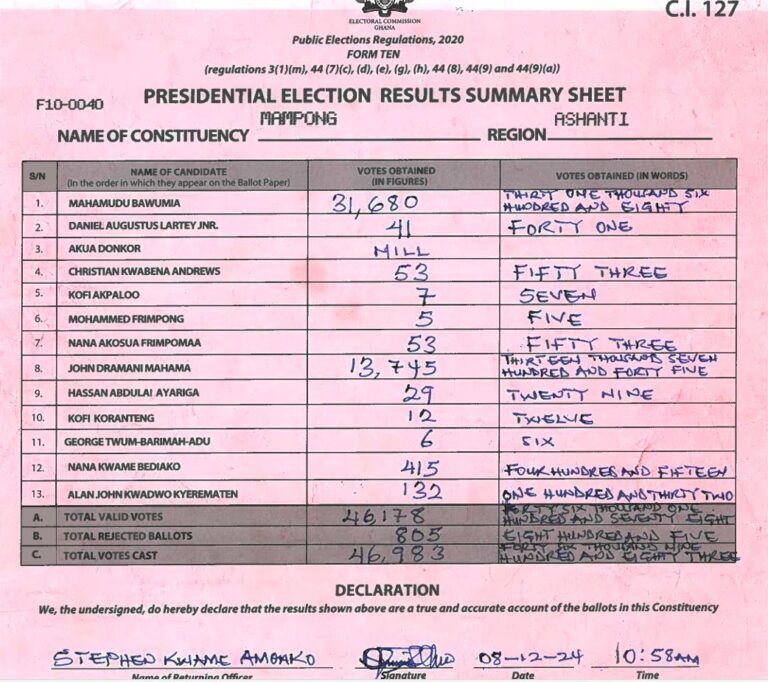 C.I. 127
ELECTORAL COMMISSION
GHANA
Public Elections Regulations, 2020
FORM TEN
(regulations 3(1)(m), 44 (7)(c), (d), (e), (g), (h), 44 (8), 44(9) and 44(9)(a))
F10-0040 PRESIDENTIAL ELECTION RESULTS SUMMARY SHEET
NAME OF CONSTITUENCY MAMPONG REGION ASHANTI
S/N NAME OF CANDIDATE (In the order in which they appear on the Ballot Paper) VOTES OBTAINED (IN FIGURES) VOTES OBTAINED (IN WORDS)
1. MAHAMUDU BAWUMIA 31,680 THIRTY ONE THOUSAND SIX HUNDRED AND EIGHTY
2. DANIEL AUGUSTUS LARTEY JNR. 41 FORTY ONE
3. AKUA DONKOR MILL
4. CHRISTIAN KWABENA ANDREWS 53 FIFTY THREE
5. KOFI AKPALOO 7 SEVEN
6. MOHAMMED FRIMPONG 5 FIVE
7. NANA AKOSUA FRIMPOMAA 53 FIFTY THREE
8. JOHN DRAMANI MAHAMA 13,745 THIRTEEN THOUSAND SEVEN HUNDRED AND FORTY FIVE
9. HASSAN ABDULAI AYARIGA 29 TWENTY NINE
10. KOFI KORANTENG 12 TWELVE
11. GEORGE TWUM-BARIMAH-ADU 6 SIX
12. NANA KWAME BEDIAKO 415 FOUR HUNDRED AND FIFTEEN
13. ALAN JOHN KWADWO KYEREMATEN 132 ONE HUNDRED AND THIRTY TWO
A. TOTAL VALID VOTES 46,178 FORTY SIX THOUSAND ONE HUNDRED AND SEVENTY EIGHT
B. TOTAL REJECTED BALLOTS 805 EIGHT HUNDRED AND FIVE
C. TOTAL VOTES CAST 46,983 FORTY SIX THOUSAND NINE HUNDRED AND EIGHTY THREE
DECLARATION
We, the undersigned, do hereby declare that the results shown above are a true and accurate account of the ballots in this Constituency
STEPHEN KWAME AMOAKO 08-12-24 10:58AM
Name of Returning Officer Signature Date Time